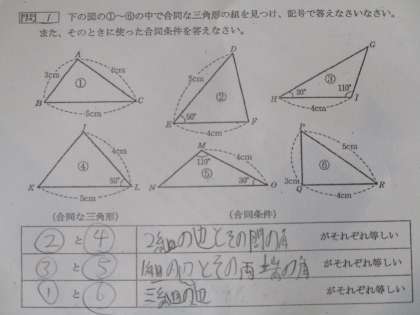 問題 1 下の図の①~⑥の中で合同な三角形の組を見つけ、記号で答えなさいなさい。
また、そのときに使った合同条件を答えなさい。
A 3cm 4cm ① B C 5cm
D 5cm ② 50° E F 4cm
G ③ 30° 110° H I 4cm
J 4cm ④ 50° K L 5cm
M 110° 4cm ⑤ 30° N O
P 5cm ⑥ 3cm Q R 4cm
(合同な三角形) (合同条件)
② と ④ 2組の辺とその間の角 がそれぞれ等しい
③ と ⑤ 1組の辺とその両端の角 がそれぞれ等しい
① と ⑥ 三組の辺 がそれぞれ等しい